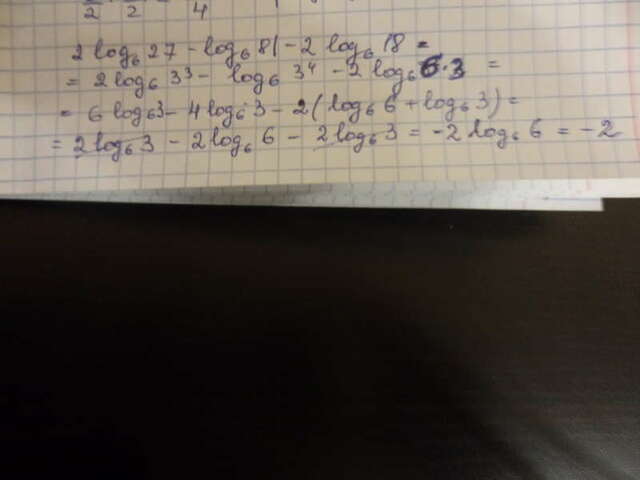 2 2 4
2 log₆ 27 - log₆ 81 - 2 log₆ 18 =
= 2 log₆ 3³ - log₆ 3⁴ - 2 log₆ 6·3 =
= 6 log₆ 3 - 4 log₆ 3 - 2 ( log₆ 6 + log₆ 3 ) =
= 2 log₆ 3 - 2 log₆ 6 - 2 log₆ 3 = -2 log₆ 6 = -2